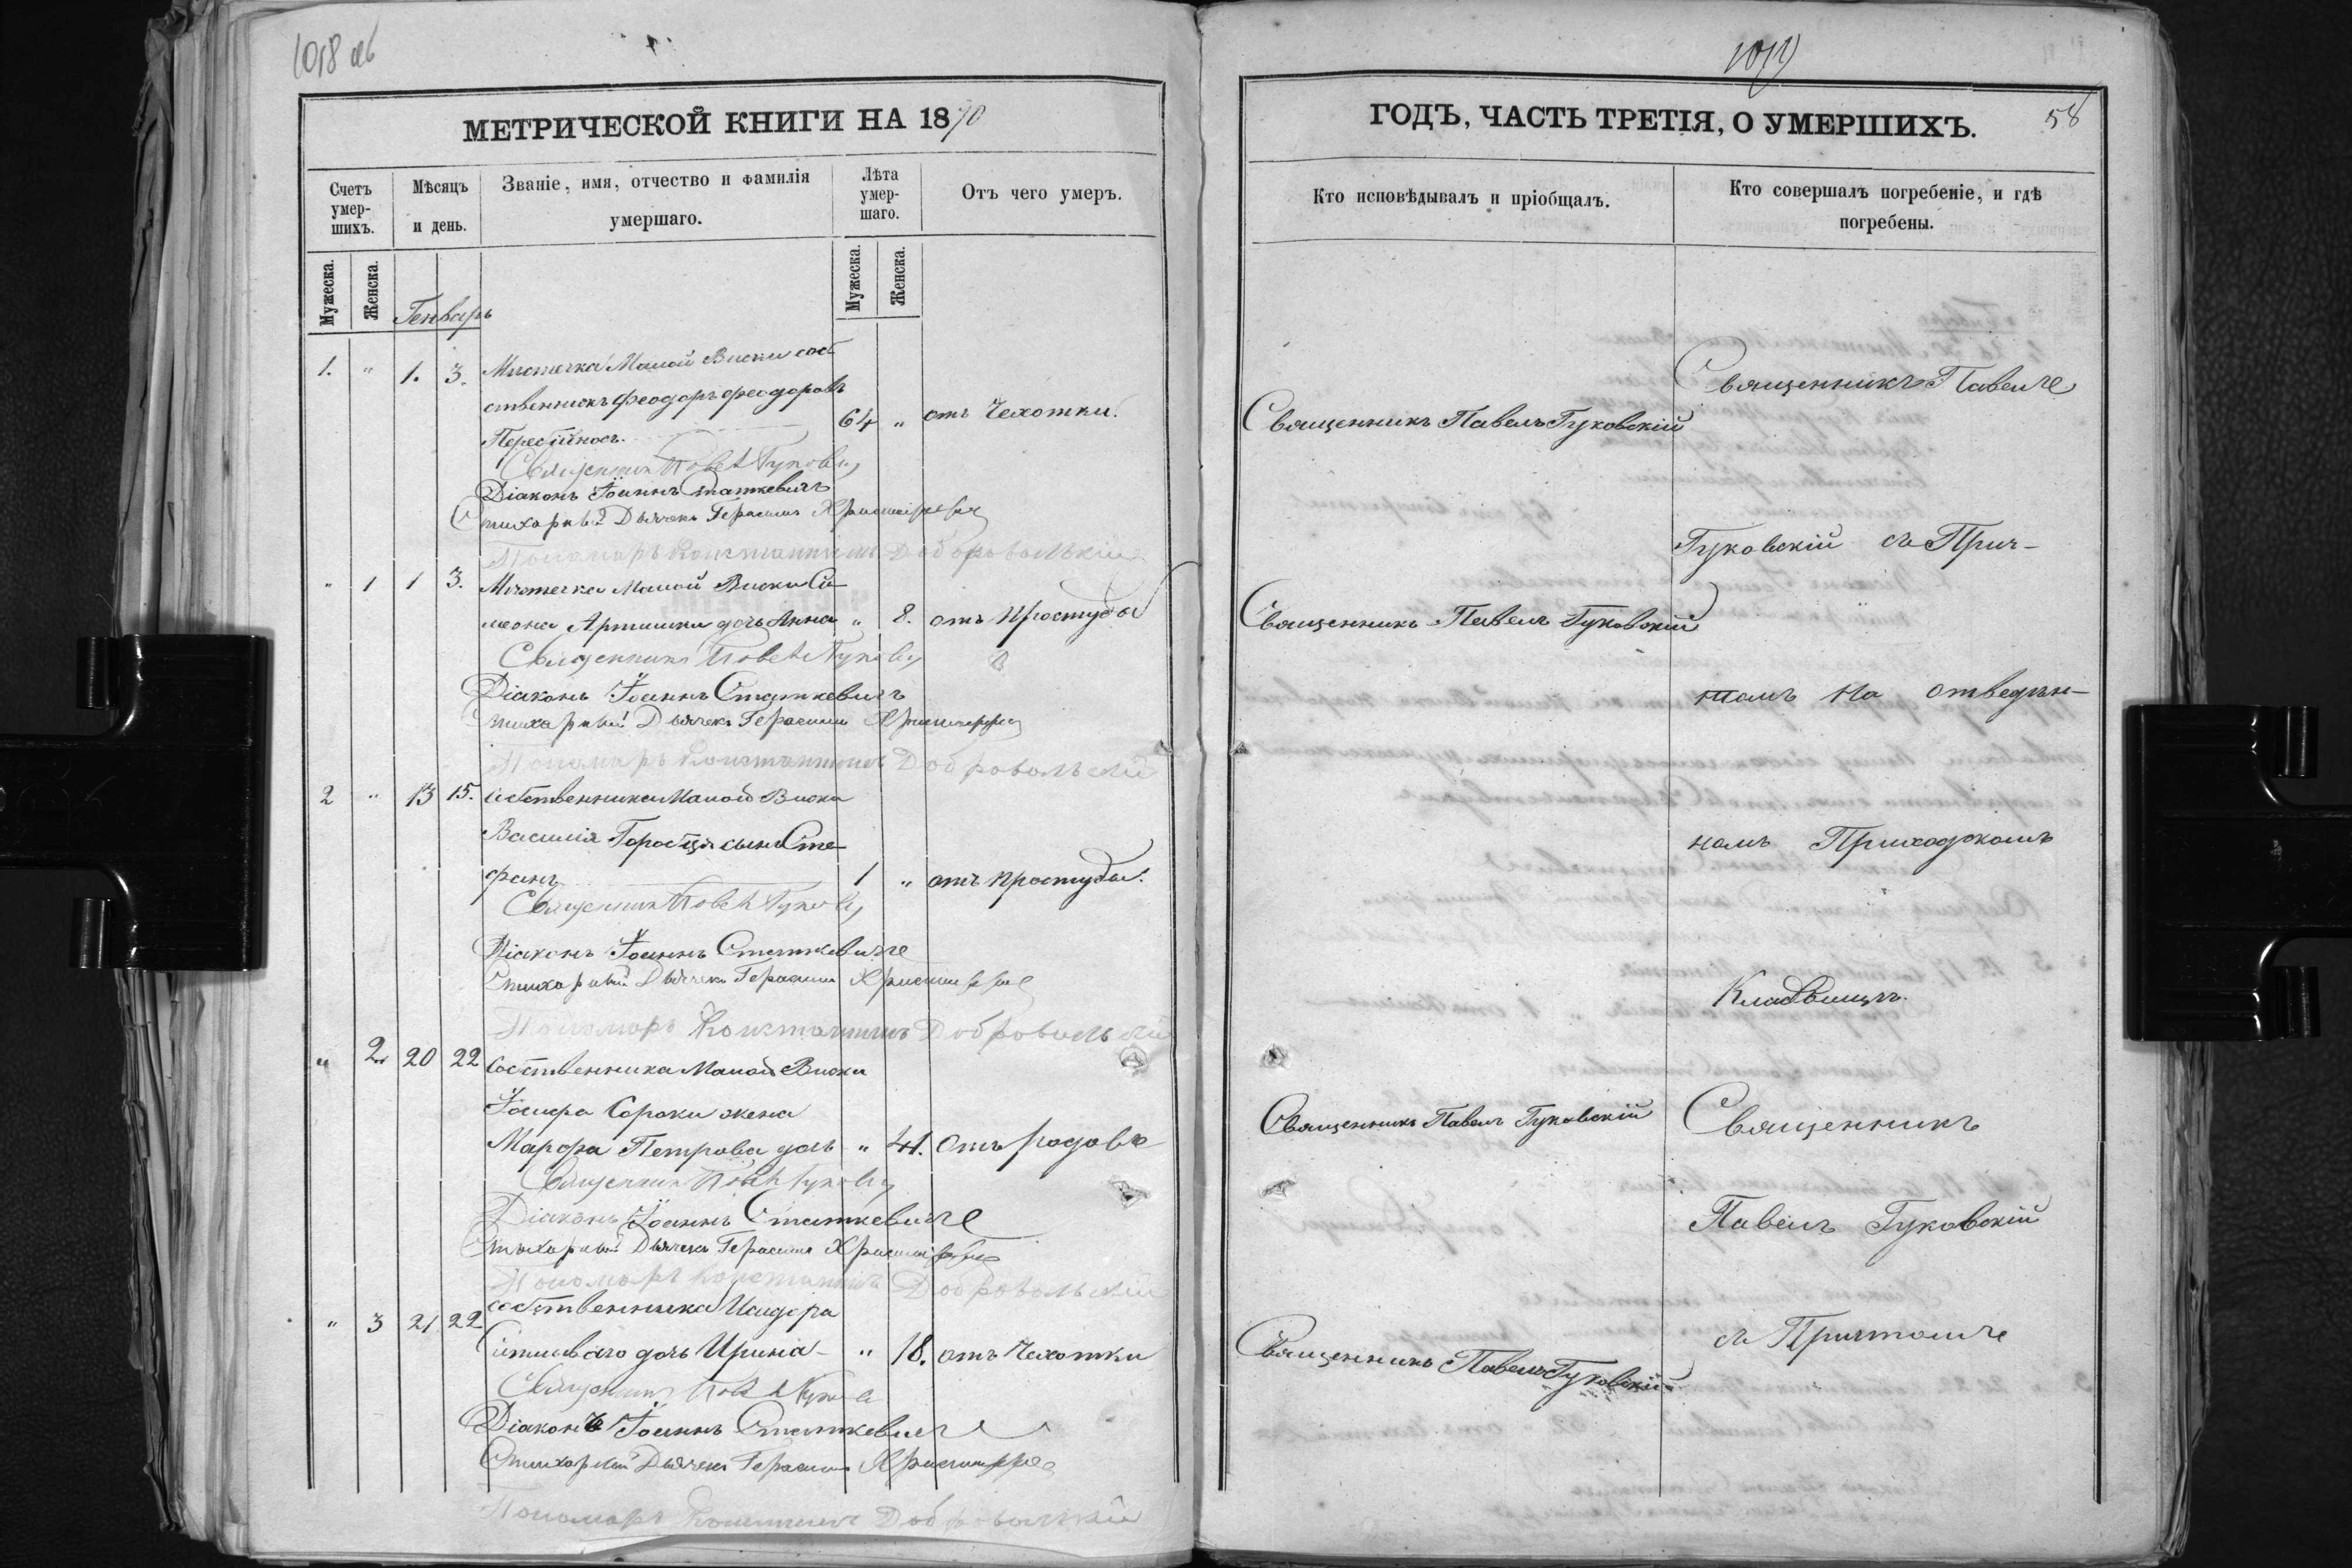 1018 об
МЕТРИЧЕСКОЙ КНИГИ НА 1870
Счетъ умер-
шихъ.
Мѣсяцъ
и день.
Званіе, имя, отчество и фамилія
умершаго.
Лѣта
умер-
шаго.
Отъ чего умеръ.
Мужеска.
Женска.
Генварь
Мужеска.
Женска.
1. " 1. 3. Мѣстечка Малой Виски соб
ственникъ Феодоръ Феодоровъ
64 " отъ Чехотки.
Священникъ Павелъ Гуковскі
Діаконъ Іоаннъ Статкевичъ
Стихарный Дьячекъ Герасимъ
Пономаръ Константинъ Добровольскій
" 1 1 3. Мѣстечка Малой Виски Си
меона Артишки дочь Анна " 8. отъ простуды
Священникъ Павелъ Гуковскі
Діаконъ Іоаннъ Статкевичъ
Стихарный Дьячекъ Герасимъ
Пономаръ Константинъ Добровольскій
2 " 13 15. Собственника Малой Виски
Василія сынъ Сте-
фанъ 1 " отъ простуды.
Священникъ Павелъ Гуковскі
Діаконъ Іоаннъ Статкевичъ
Стихарный Дьячекъ Герасимъ
Пономаръ Константинъ Добровольскій
" 2 20 22 Собственника Малой Виски
Іосифа Сороки жена
Марфа Петрова дочь " 41. отъ родовъ
Священникъ Павелъ Гуковскі
Діаконъ Іоаннъ Статкевичъ
Стихарный Дьячекъ Герасимъ
Пономаръ Константинъ Добровольскій
" 3 21 22 Собственника Исидора
дочь Ирина " 18. отъ Чехотки
Священникъ Павелъ Гуковскі
Діаконъ Іоаннъ Статкевичъ
Стихарный Дьячекъ Герасимъ
Пономаръ Константинъ Добровольскій
1019
ГОДЪ, ЧАСТЬ ТРЕТІЯ, О УМЕРШИХЪ.
58
Кто исповѣдывалъ и пріобщалъ.
Кто совершалъ погребеніе, и гдѣ
погребены.
Священникъ Павелъ
Священникъ Павелъ Гуковскій
Гуковскій съ Прич-
Священникъ Павелъ Гуковскій
томъ на отведен-
номъ Приходскомъ
Кладбищѣ.
Священникъ Павелъ Гуковскій
Священникъ
Павелъ Гуковскій
съ Причтомъ
Священникъ Павелъ Гуковскій